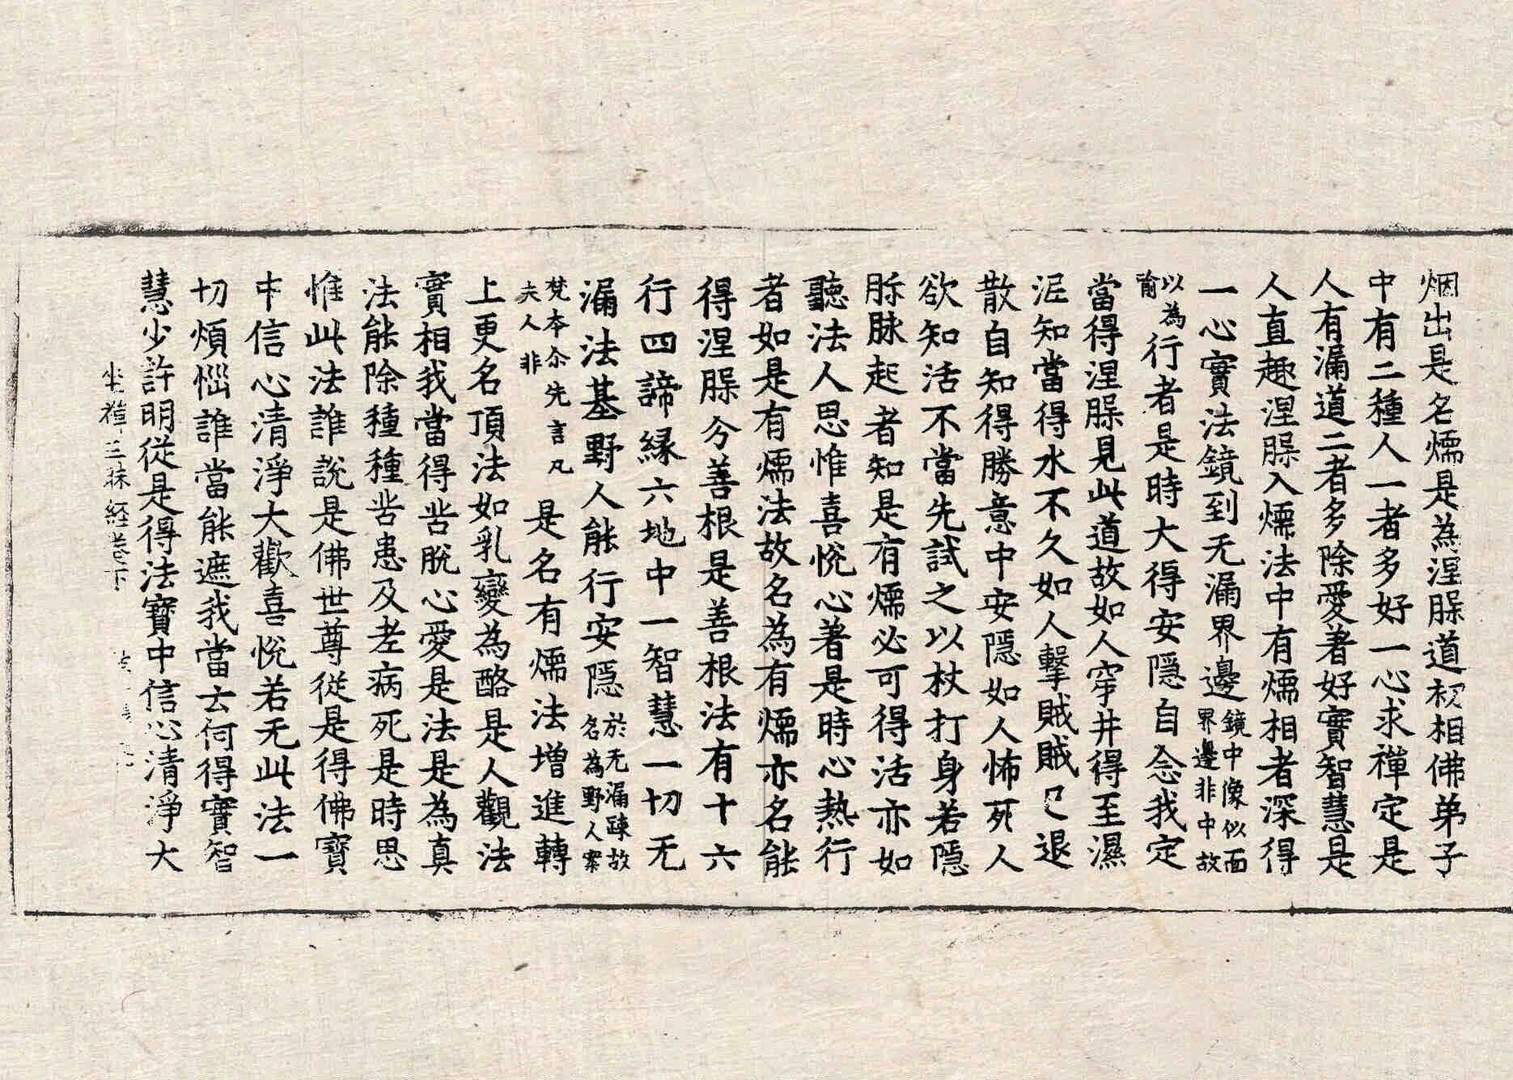 烟出是名㷇是為涅槃道初相佛弟子
中有二種人一者多好一心求禪定是
人有漏道二者多除愛著好實智慧是
人直趣涅槃入㷇法中有㷇相者深得
一心實法鏡到无漏界邊鏡中像似面界邊非中故
以為喻行者是時大得安隱自念我定
當得涅槃見此道故如人穿井得至濕
泥知當得水不久如人擊賊賊已退
散自知得勝意中安隱如人怖死人
欲知活不當先試之以杖打身若隱
胗脉起者知是有㷇必可得活亦如
聽法人思惟喜悅心著是時心熱行
者如是有㷇法故名為有㷇亦名能
得涅槃分善根是善根法有十六
行四諦緣六地中一智慧一切无
漏法基野人能行安隱於无漏疎故名為野人案
梵本尒先言凡夫人非是名有㷇法增進轉
上更名頂法如乳變為酪是人觀法
實相我當得苦脫心愛是法是為真
法能除種種苦患及老病死是時思
惟此法誰說是佛世尊從是得佛寶
中信心清淨大歡喜悅若无此法一
切煩惱誰當能遮我當云何得實智
慧少許明從是得法寶中信心清淨大
坐禪三昧経卷下